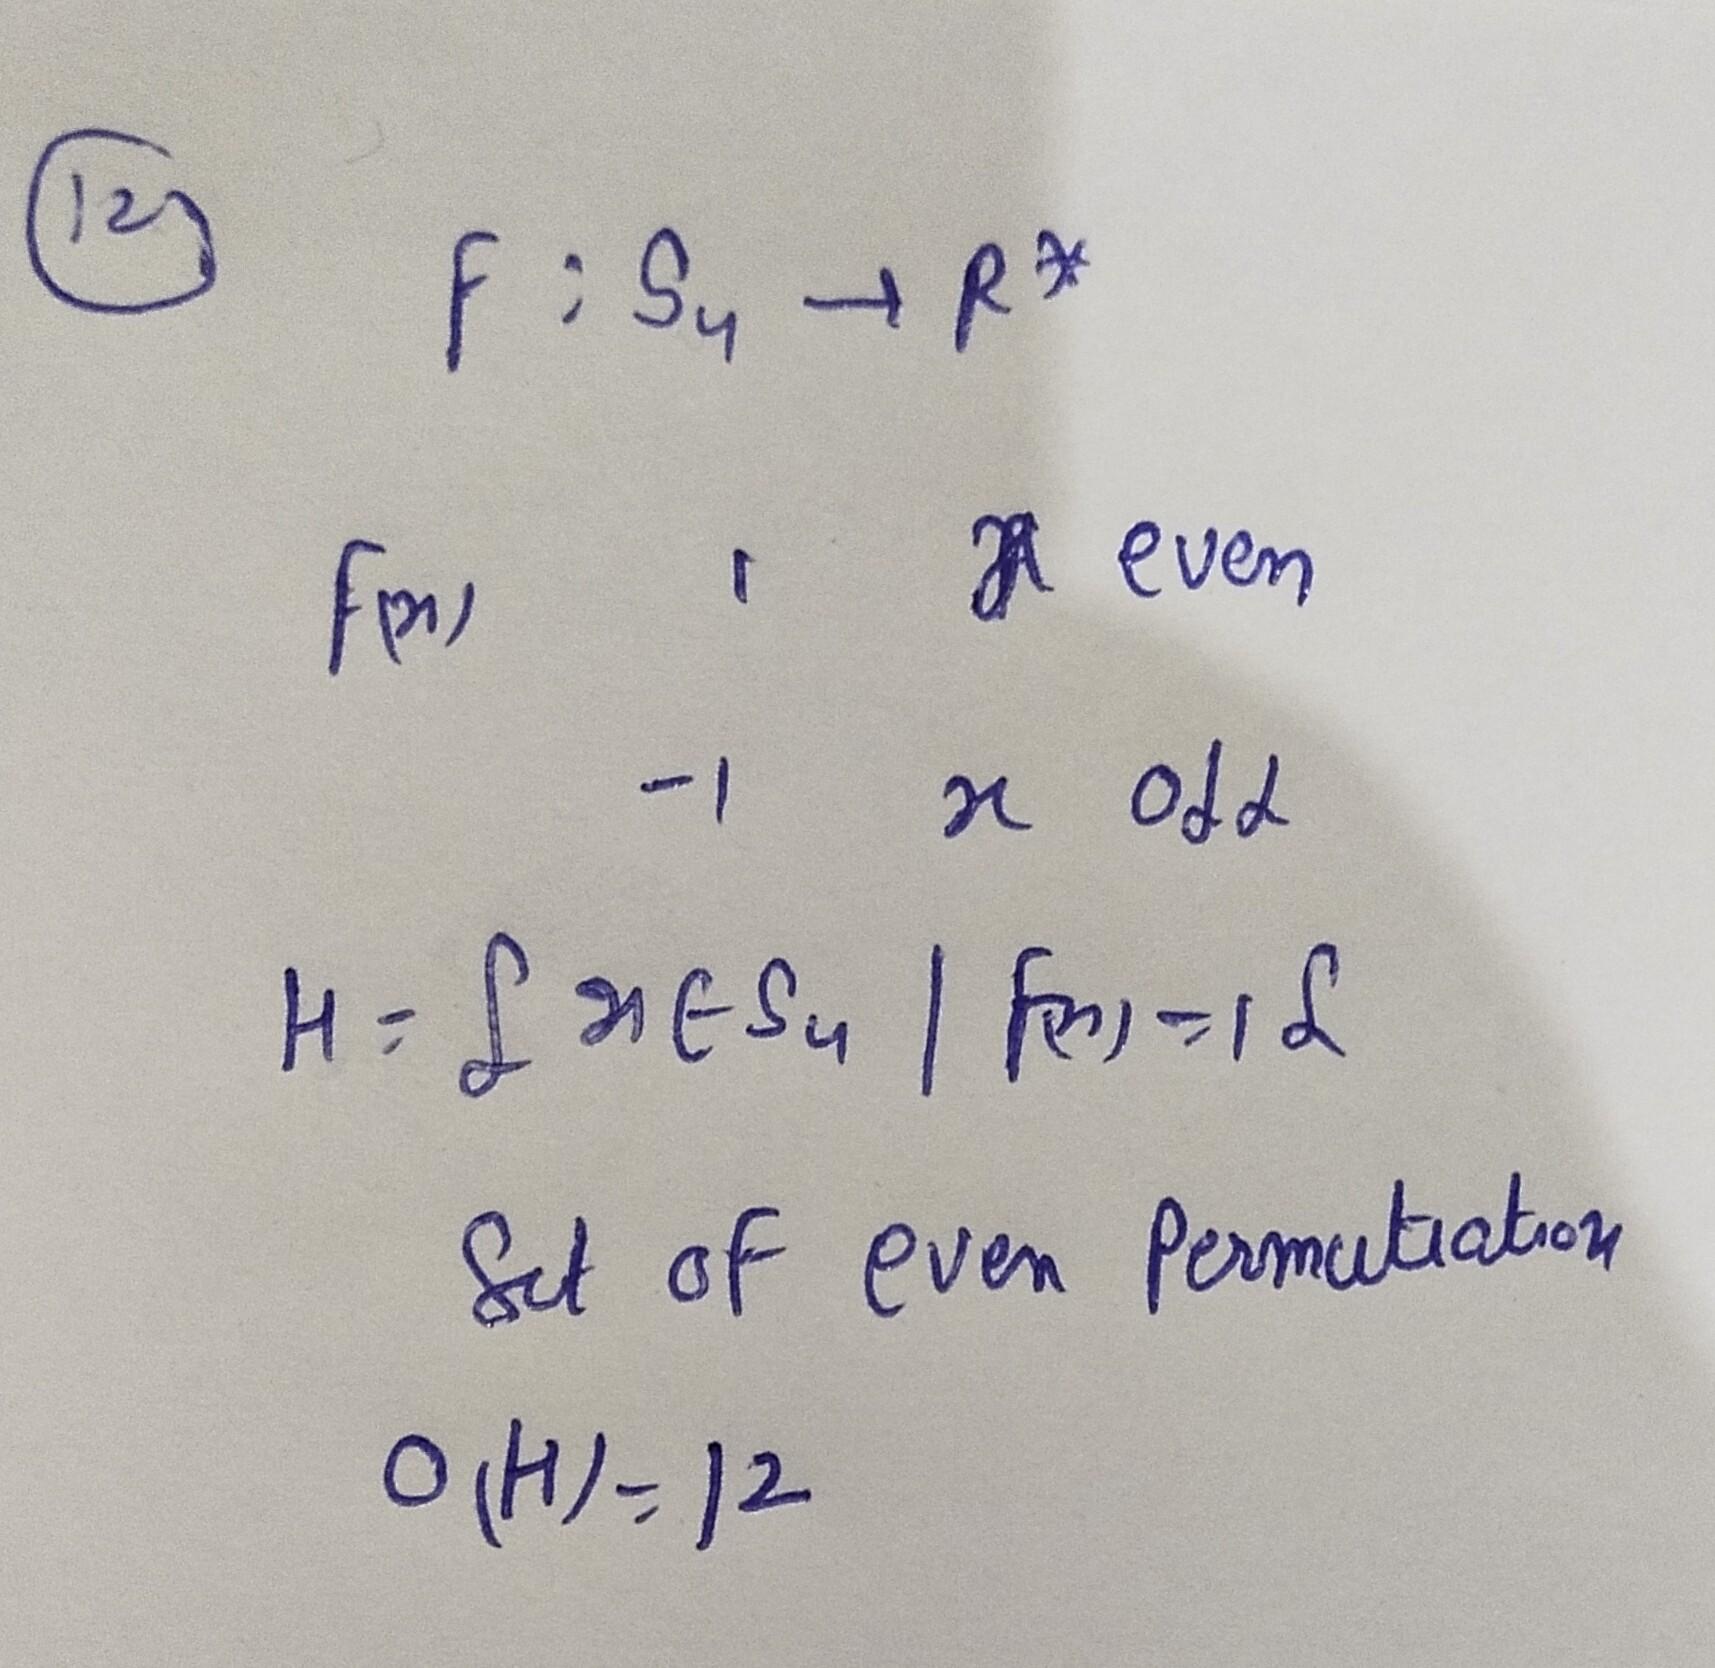 12)
F : S4 → R*
F(x) 1 x even
-1 x odd
H = { x ∈ S4 | F(x) = 1 }
Set of even Permutation
O(H) = 12